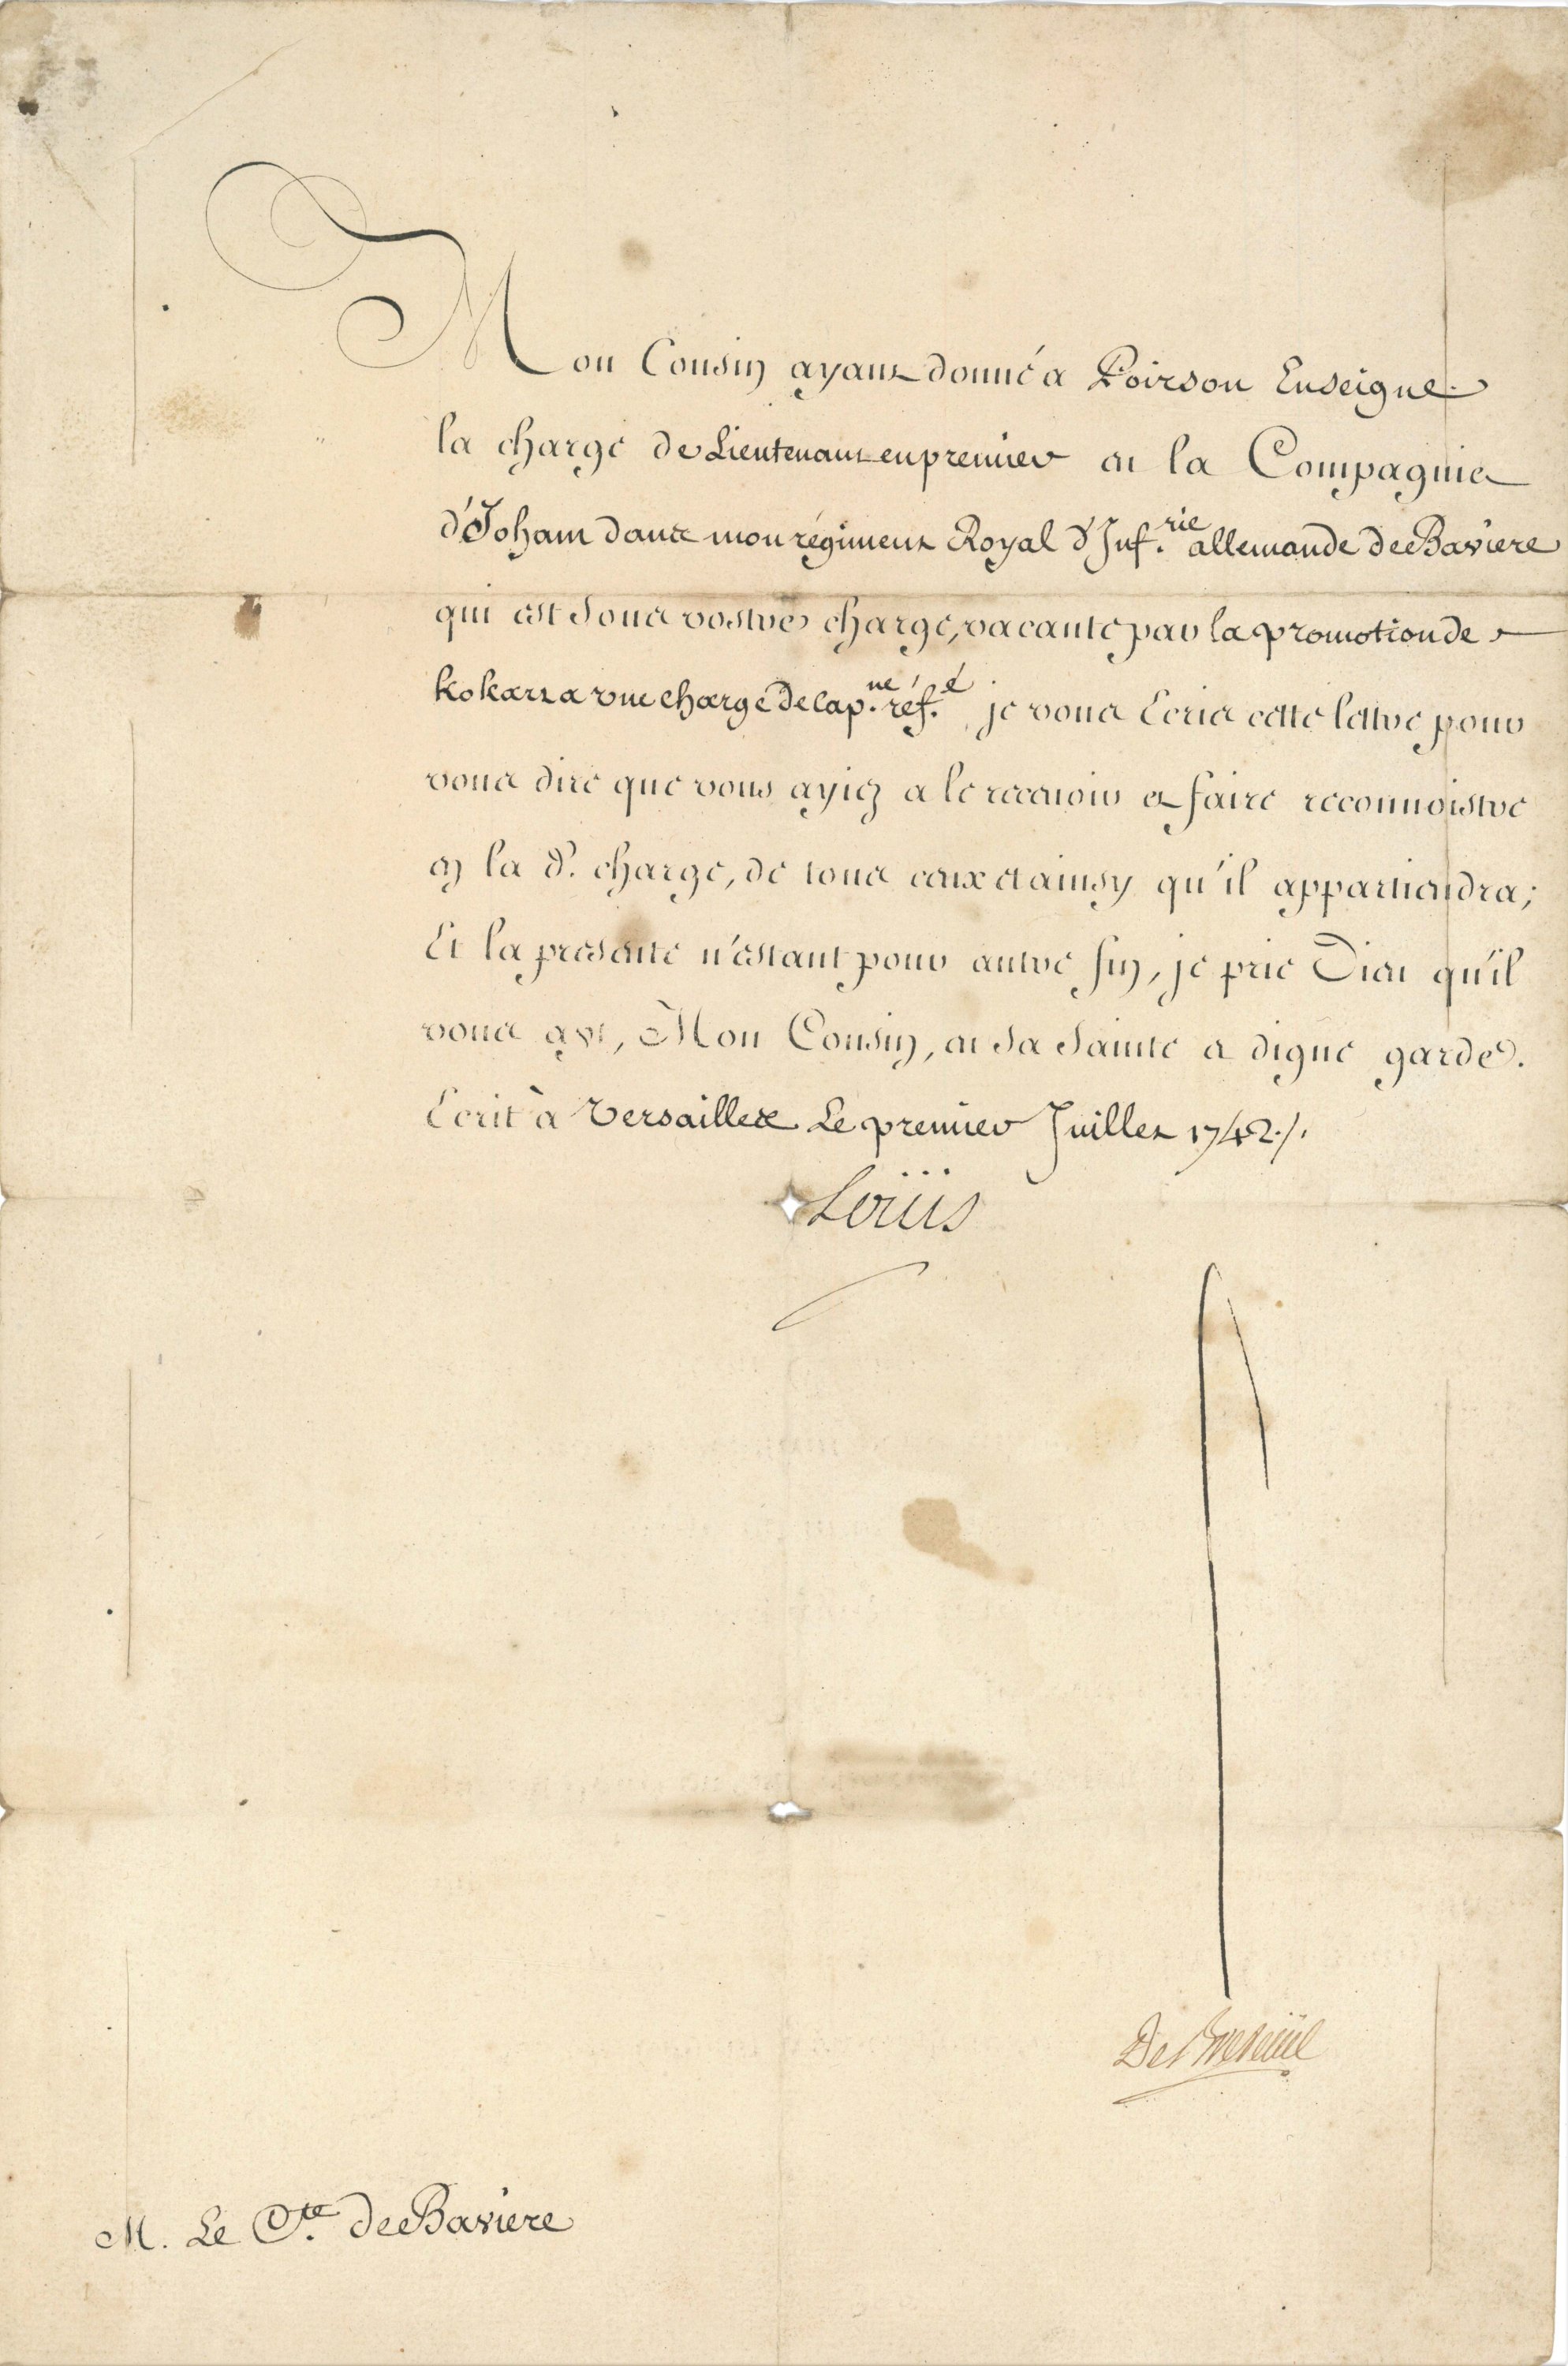 Mon Cousin ayant donné a Poirson Enseigne
la charge de Lieutenant en premier en la Compagnie
d'Joham dans mon régiment Royal d'Inf.rie allemande de Baviere
qui est sous vostre charge, vacante par la promotion de
kokart a une charge de cap.ne réf.é je vous Ecris cette lettre pour
vous dire que vous ayiez a le recevoir et faire reconnoistre
en la d. charge, de tous ceux et ainsy qu'il appartiendra;
Et la presente n'estant pour autre fin, je prie Dieu qu'il
vous ayt, Mon Cousin, en sa sainte et digne garde.
Ecrit à Versailles Le premier Juillet 1742./.
Loüis
De Breteüil
M. Le Cte. de Baviere